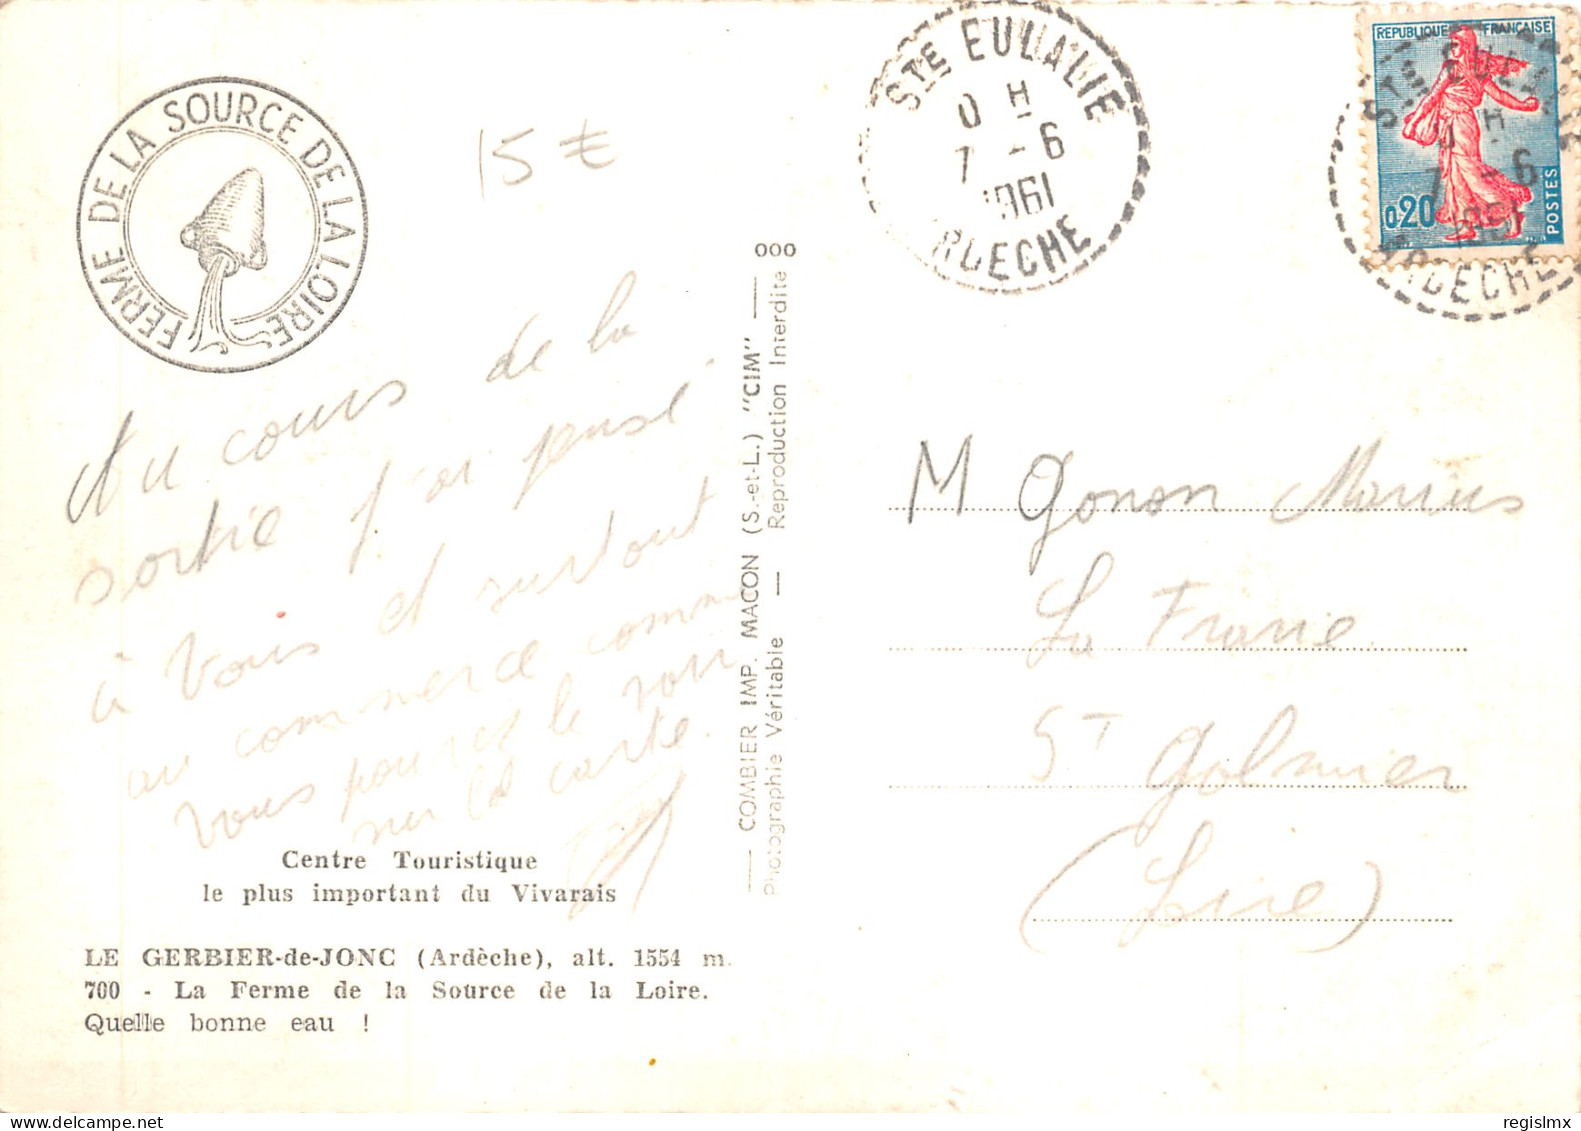 FERME DE LA SOURCE DE LA LOIRE
15 €
Au cours de la
sortie j'ai pensé
à Vous et surtout
au commerce comme
vous pourez le voir
sur la carte.
Centre Touristique
le plus important du Vivarais
LE GERBIER-de-JONC (Ardèche), alt. 1554 m.
700 - La Ferme de la Source de la Loire.
Quelle bonne eau !
000
COMBIER IMP. MACON (S.-et-L.) "CIM"
Photographie Véritable — Reproduction Interdite
STE EULALIE
0 H
7 - 6
1961
ARDECHE
REPUBLIQUE FRANÇAISE
0,20
POSTES
STE EULALIE
0 H
7 - 6
1961
ARDECHE
M Gonon Marius
La Franie
ST Galmier
(Loire)